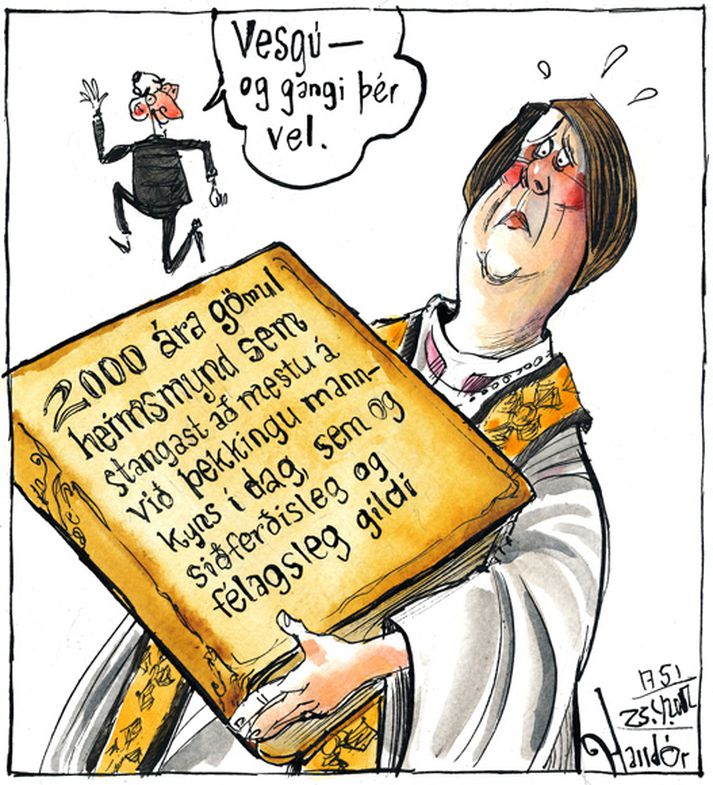 Vesgú—
og gangi þér
vel.
2000 ára gömul
heimsmynd sem
stangast að mestu á
við þekkingu mann-
kyns í dag, sem og
siðferðisleg og
félagsleg gildi
1751
Halldór